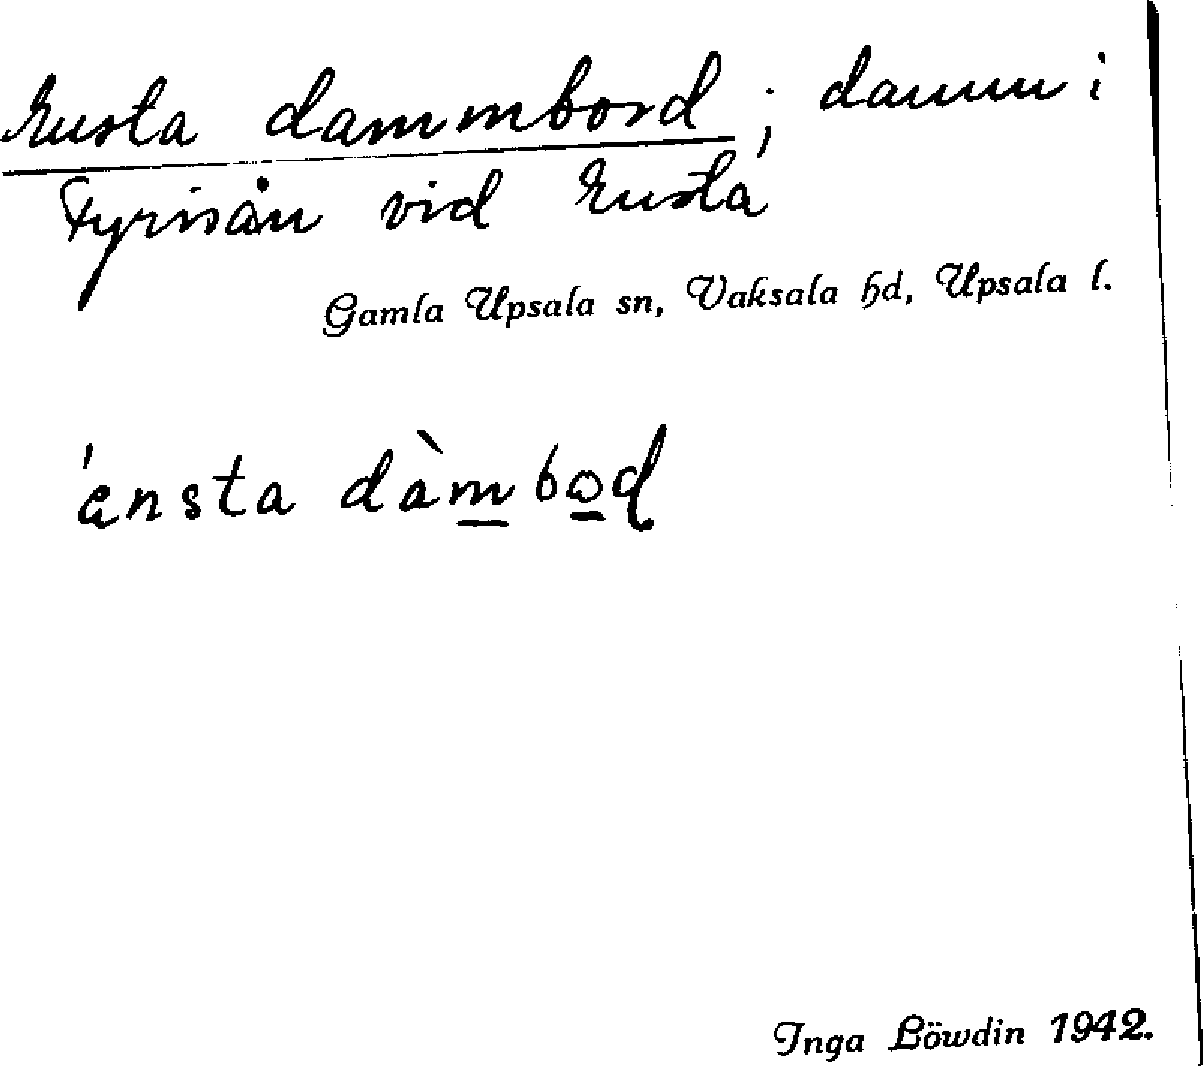 Ensta dammbord; damm i
Fyrisån vid Ensta
Gamla Upsala sn, Vaksala hd, Upsala l.
ensta dàmbod
Inga Löwdin 1942.